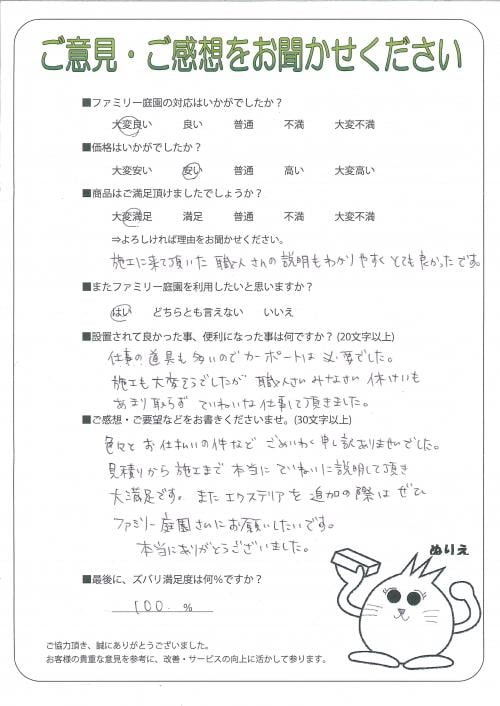 ご意見・ご感想をお聞かせください
■ファミリー庭園の対応はいかがでしたか？
大変良い　良い　普通　不満　大変不満
■価格はいかがでしたか？
大変安い　安い　普通　高い　大変高い
■商品はご満足頂けましたでしょうか？
大変満足　満足　普通　不満　大変不満
⇒よろしければ理由をお聞かせください。
施工に来て頂いた職人さんの説明もわかりやすくとても良かったです。
■またファミリー庭園を利用したいと思いますか？
はい　どちらとも言えない　いいえ
■設置されて良かった事、便利になった事は何ですか？(20文字以上)
仕事の道具も多いのでカーポートは必要でした。
施工も大変そうでしたが職人さんみなさん休けいも
あまり取らずていねいな仕事して頂きました。
■ご感想・ご要望などをお書きくださいませ。(30文字以上)
色々とお仕払いの件などごめいわく申し訳ありませんでした。
見積りから施工まで本当にていねいに説明して頂き
大満足です。またエクステリアを追加の際はぜひ
ファミリー庭園さんにお願いしたいです。
本当にありがとうございました。
ぬりえ
■最後に、ズバリ満足度は何％ですか？
100 %
ご協力頂き、誠にありがとうございました。
お客様の貴重な意見を参考に、改善・サービスの向上に活かして参ります。